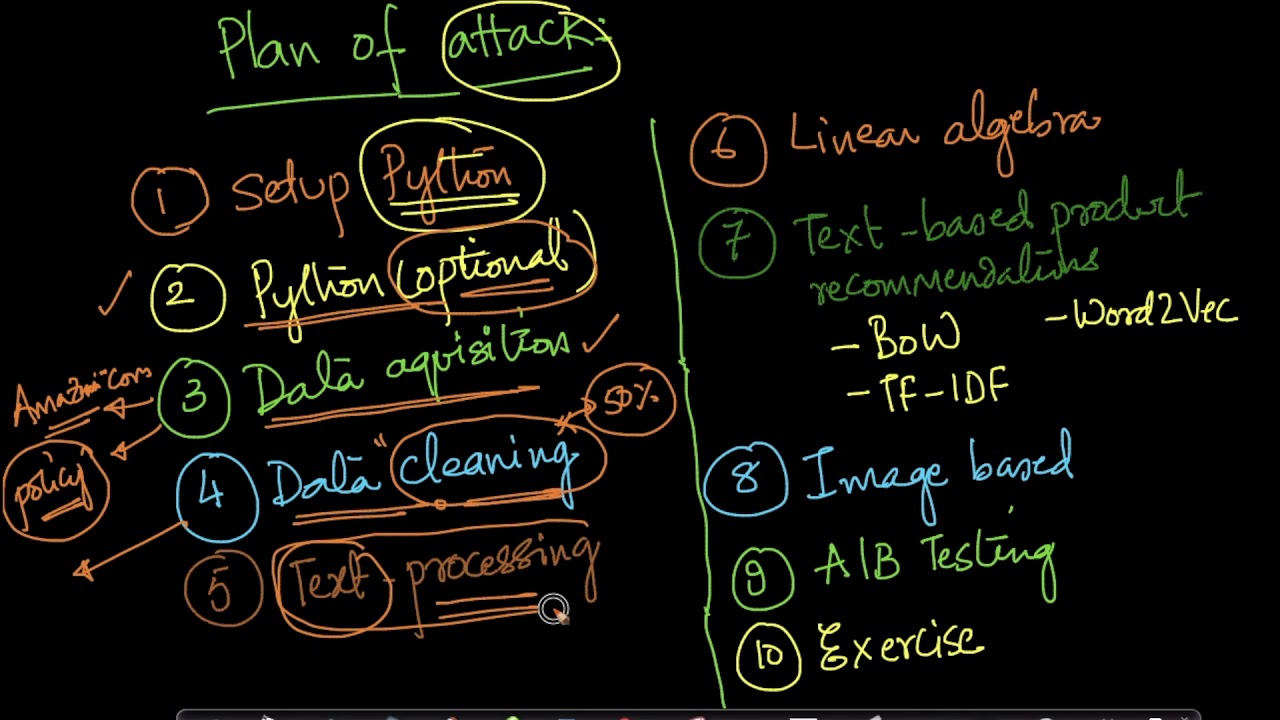 Plan of attack:
1 Setup Python
2 Python (optional)
3 Data aqusition
Amazon.com
policy
4 Data "cleaning
50%
5 Text-processing
6 Linear algebra
7 Text-based product
recommendations
- BoW
- Word2Vec
- TF-IDF
8 Image based
9 A/B Testing
10 Exercise